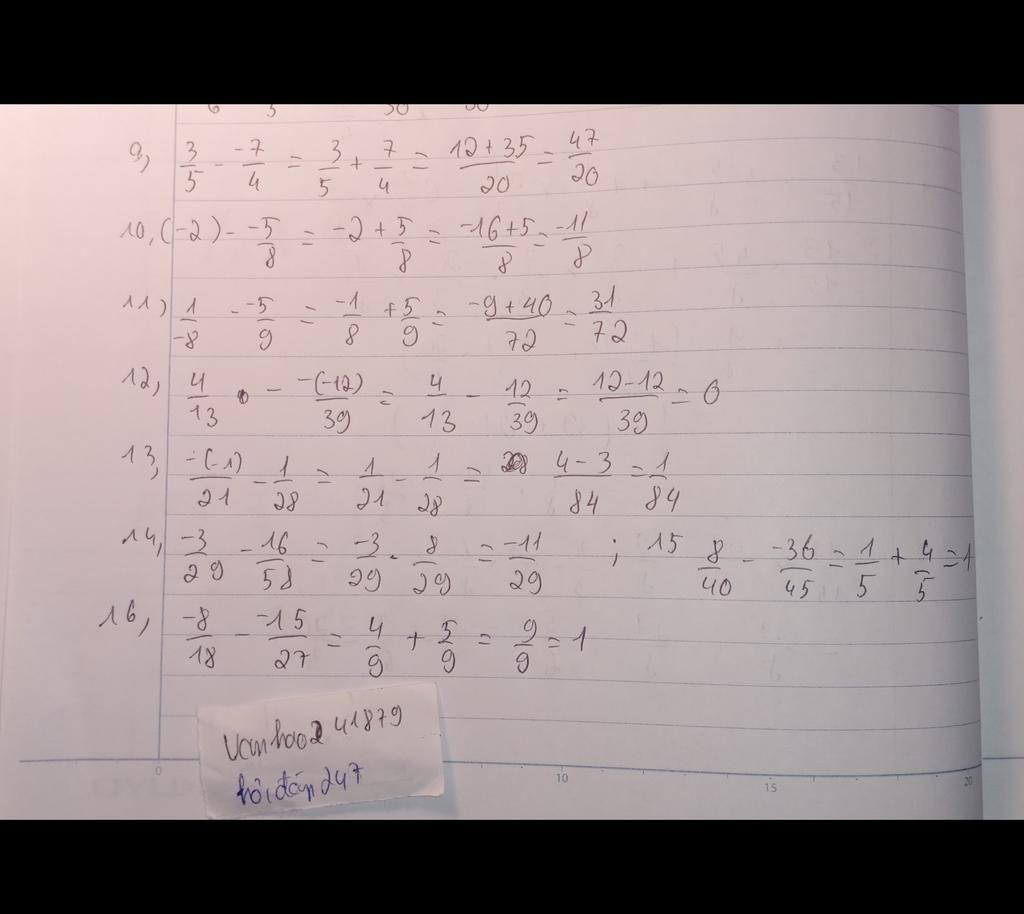 9, 3/5 - -7/4 = 3/5 + 7/4 = 12+35/20 = 47/20
10, (-2) - -5/8 = -2 + 5/8 = -16+5/8 = -11/8
11, 1/-8 - -5/9 = -1/8 + 5/9 = -9+40/72 = 31/72
12, 4/13 - -(-12)/39 = 4/13 - 12/39 = 12-12/39 = 0
13, -(-1)/21 - 1/28 = 1/21 - 1/28 = 4-3/84 = 1/84
14, -3/29 - 16/58 = -3/29 - 8/29 = -11/29 ; 15 8/40 - -36/45 = 1/5 + 4/5 = 1
16, -8/18 - -15/27 = 4/9 + 5/9 = 9/9 = 1
Vanhao241879
hỏi đáp 247
0 10 15 20